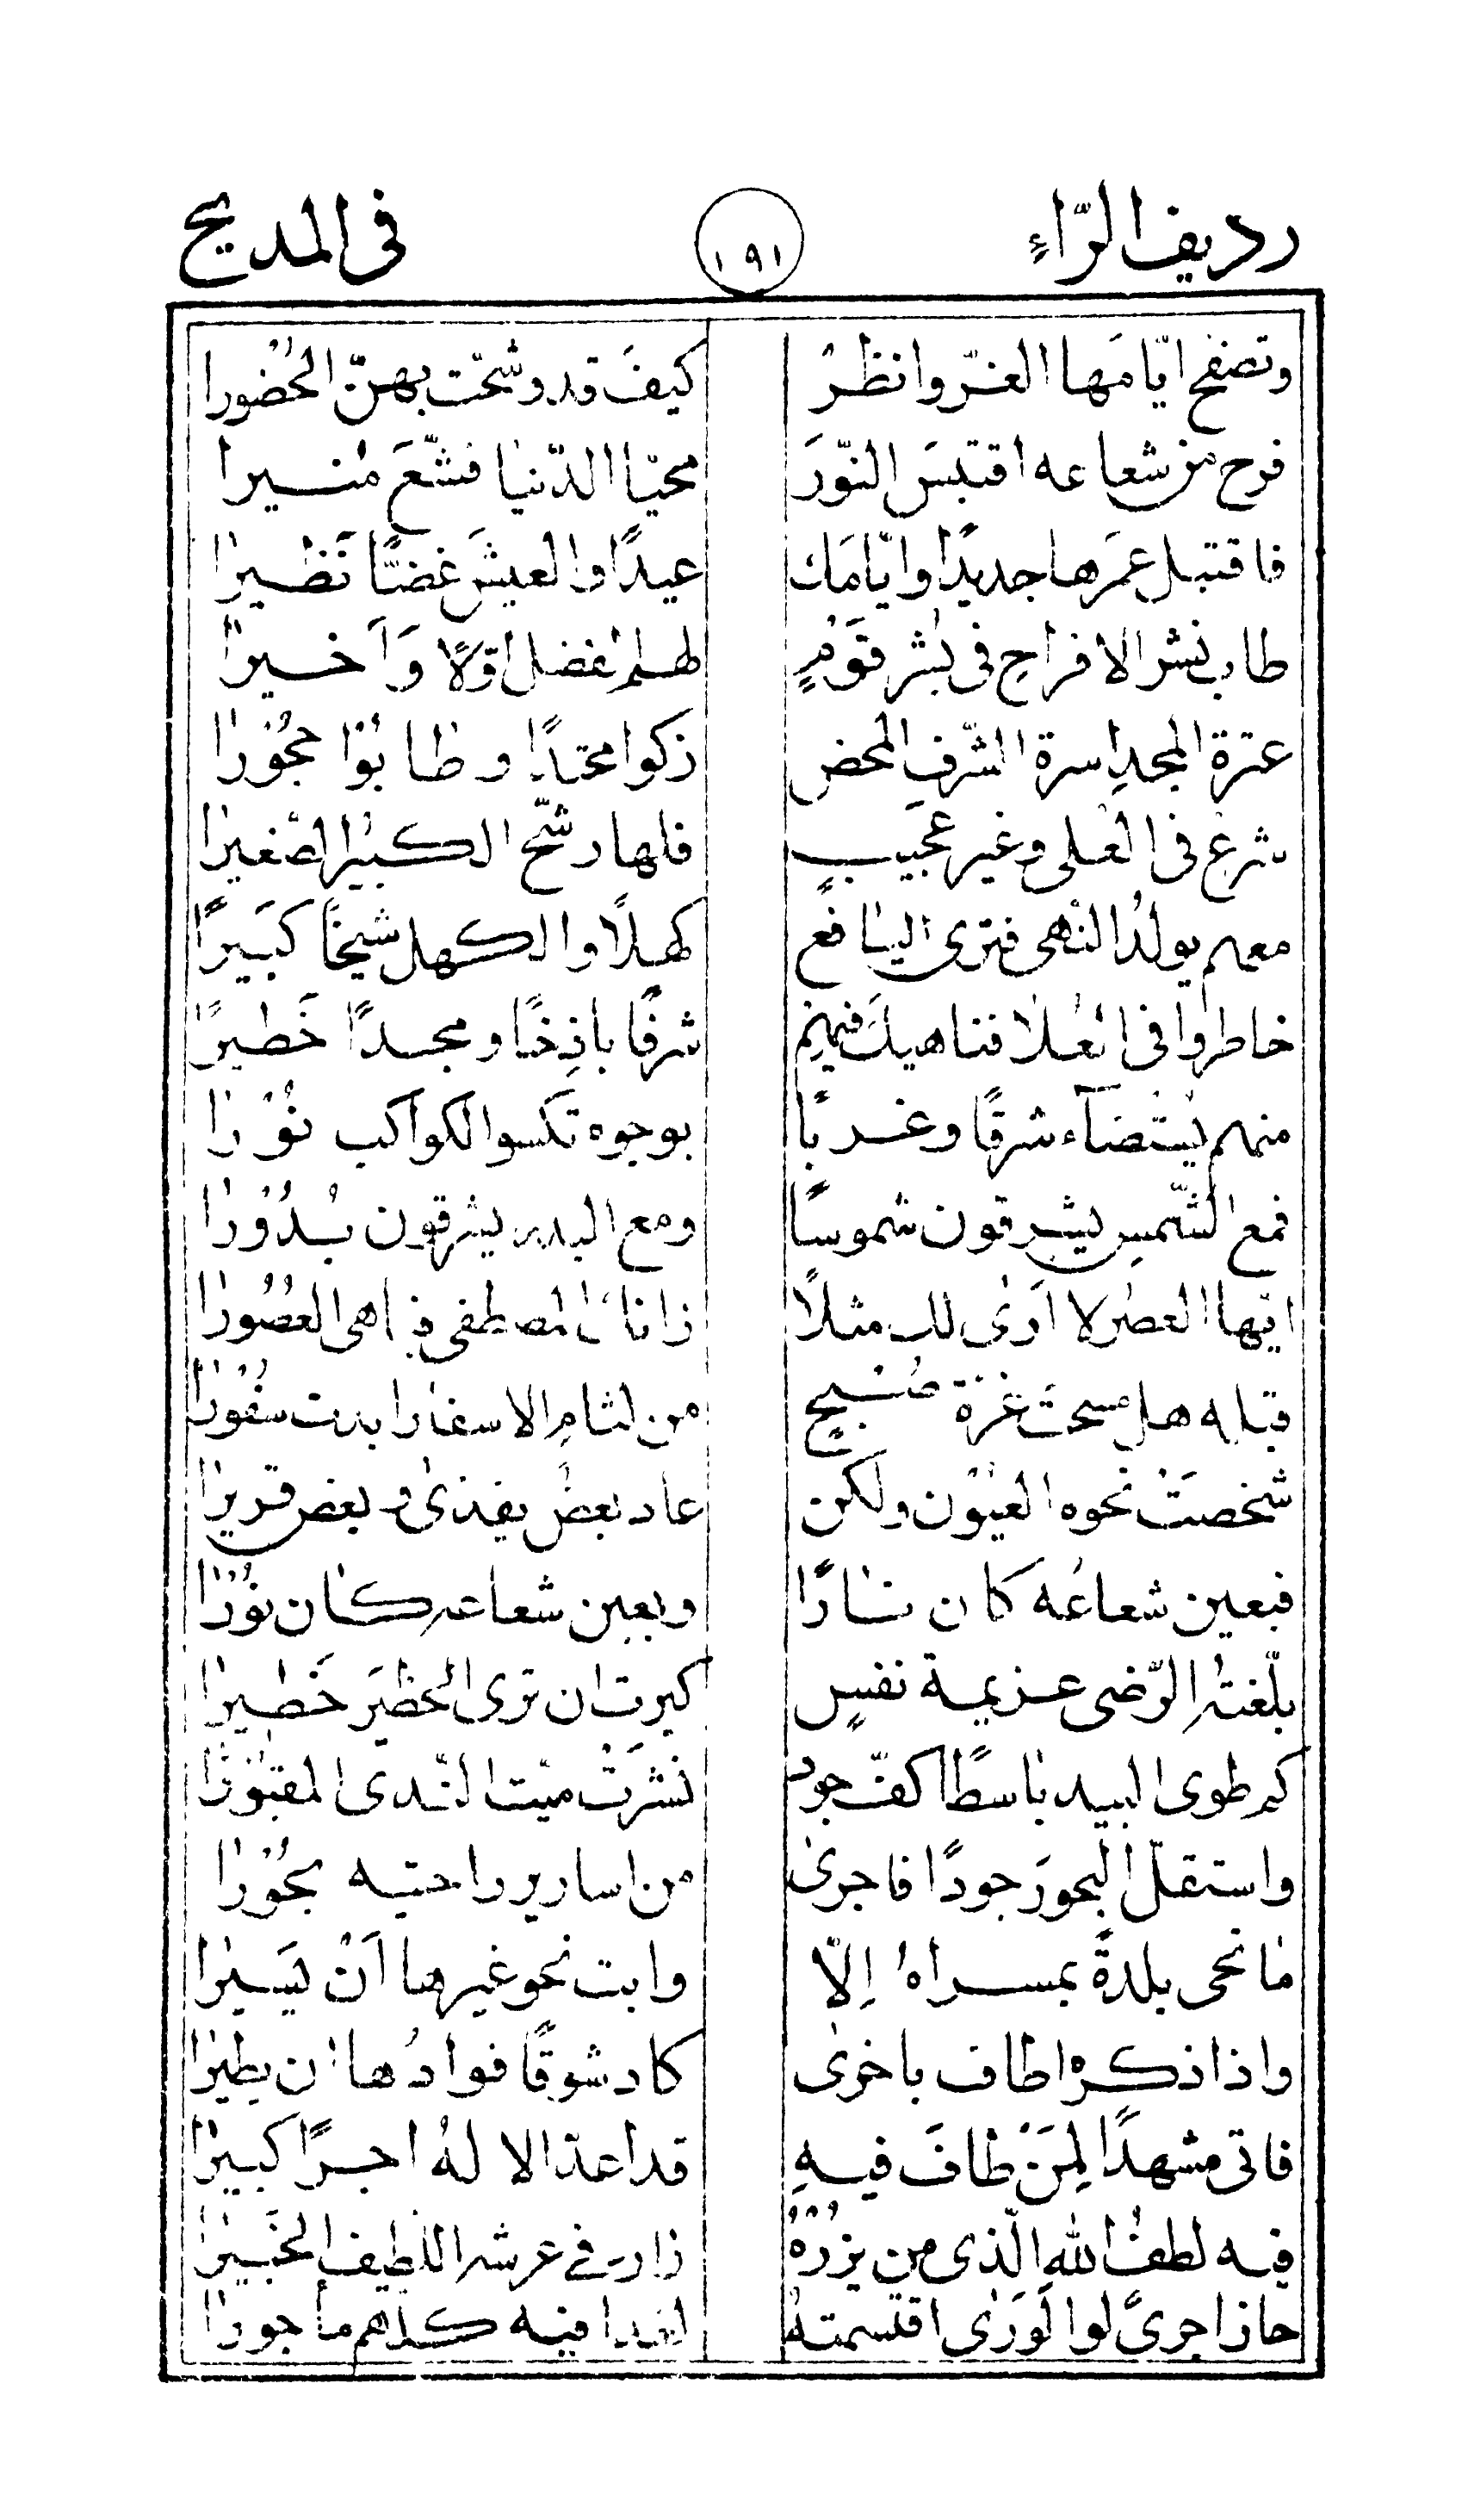 رديف الرّاءِ ١٩١ فى المديح
وتصفح ايّامَها الغرّ وانظرْ كيفَ قد وشّحت بهنّ الخُصُورا
فرح من شعاعه اقتبسَ النّورَ محيّا الدّنيا فشّعَ منيرا
فاقتبل عمَرها جديدًا وايّامَك عيدًا والعيشَ غضًّا نَظيرا
طاب نشر الافراحِ فى بشر قَوْمٍ لهم الفضل اوّلًا وَاَخيرا
عترة المجدِ اسرة الشّرفِ المحض زكوا محتدًا وطابُوْا حجُوْرا
شرعٌ فى العُلى وغير عَجيبٍ فلها رشّح الكبيرُ الصّغيرا
معهم يولدُ النُهى فترى اليافعَ كهلًا والكهل شيخًا كبَيرًا
خاطروا فى العُلا فناهيكَ فيهِم شرفًا باذِخًا ومجدًا خَطيرًا
منهم يُستضآء شرقًا وغربًا بوجوه تكسوا الكواكب نُوْرا
فمع الشّمسِ يشرقون شموسًا ومع البدر يشرقون بُدُوْرا
ايّها العصر لا اَرى لك مثلًا زانك المصطفى فباهى العُصُورا
قبله هل مسحتَ غرّة صُبحٍ من لثامِ الاسفار ابدت سفُورا
شخصَتْ نحوه العيُوْن ولكن عاد بعضٌ يقذى وبعض قريرا
فبعين شعاعُه كان نارًا وبعين شعاعه كان نوُرًا
بلّغته الرّضى عزيمة نفسٍ كبرت ان ترى الخطيَر خَطيرا
كم طوى البيد باسطًا كفّ جود نشرَتْ ميّت النّدى المقبُوْرا
واستقلّ البحورَ جودًا فاجرى من اسارير راحتيه بحُوْرا
ما نحى بلدةً بمسراهُ اِلّا وابت نحو غيرها اَنْ يَسيرا
واذا ذكرهُ طاف باخرى كاد شوقًا فوادُها ان يطيرا
فاتى مشهدًا لِمَنْ طافَ فيهِ قد اعدّ الا لهُ اجرًا كبيرا
فيه لطفُ اللهِ الّذى من يزُرْهُ زار فى عرشه اللّطيف الخَبيرا
حاز اجرًى لوا لوَرى اقتسمتهُ لغدا فيه كلهم ماجورا